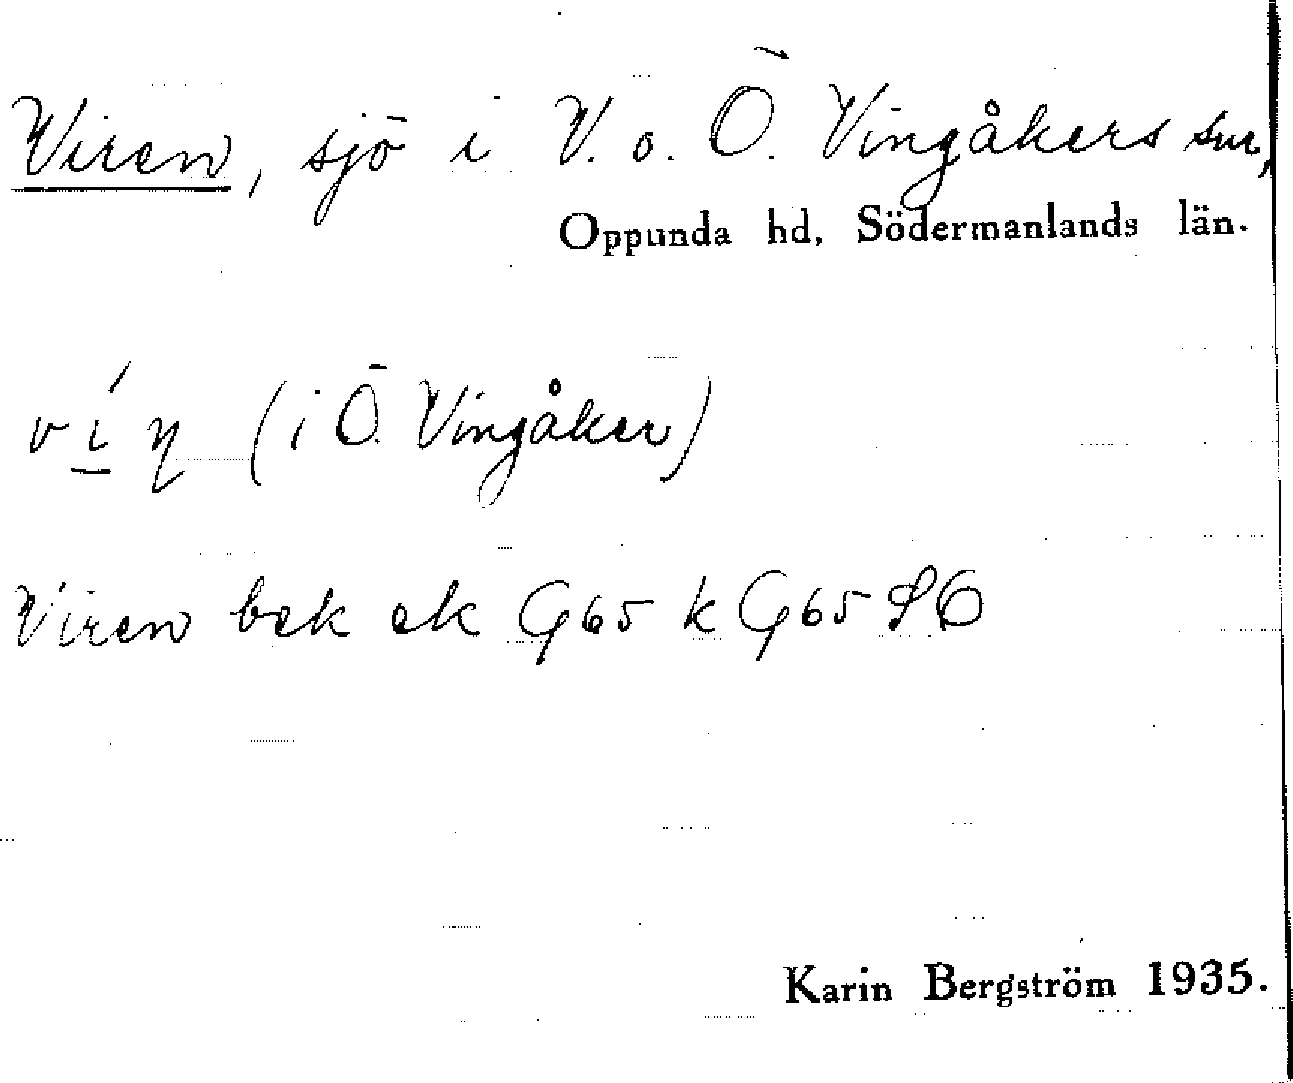 Viren, sjö i V. o. Ö. Vingåkers snr,
Oppunda hd, Södermanlands län.
ví̱ŋ (i Ö. Vingåker)
Viren bek ek G65 k G65 SÖ
Karin Bergström 1935.